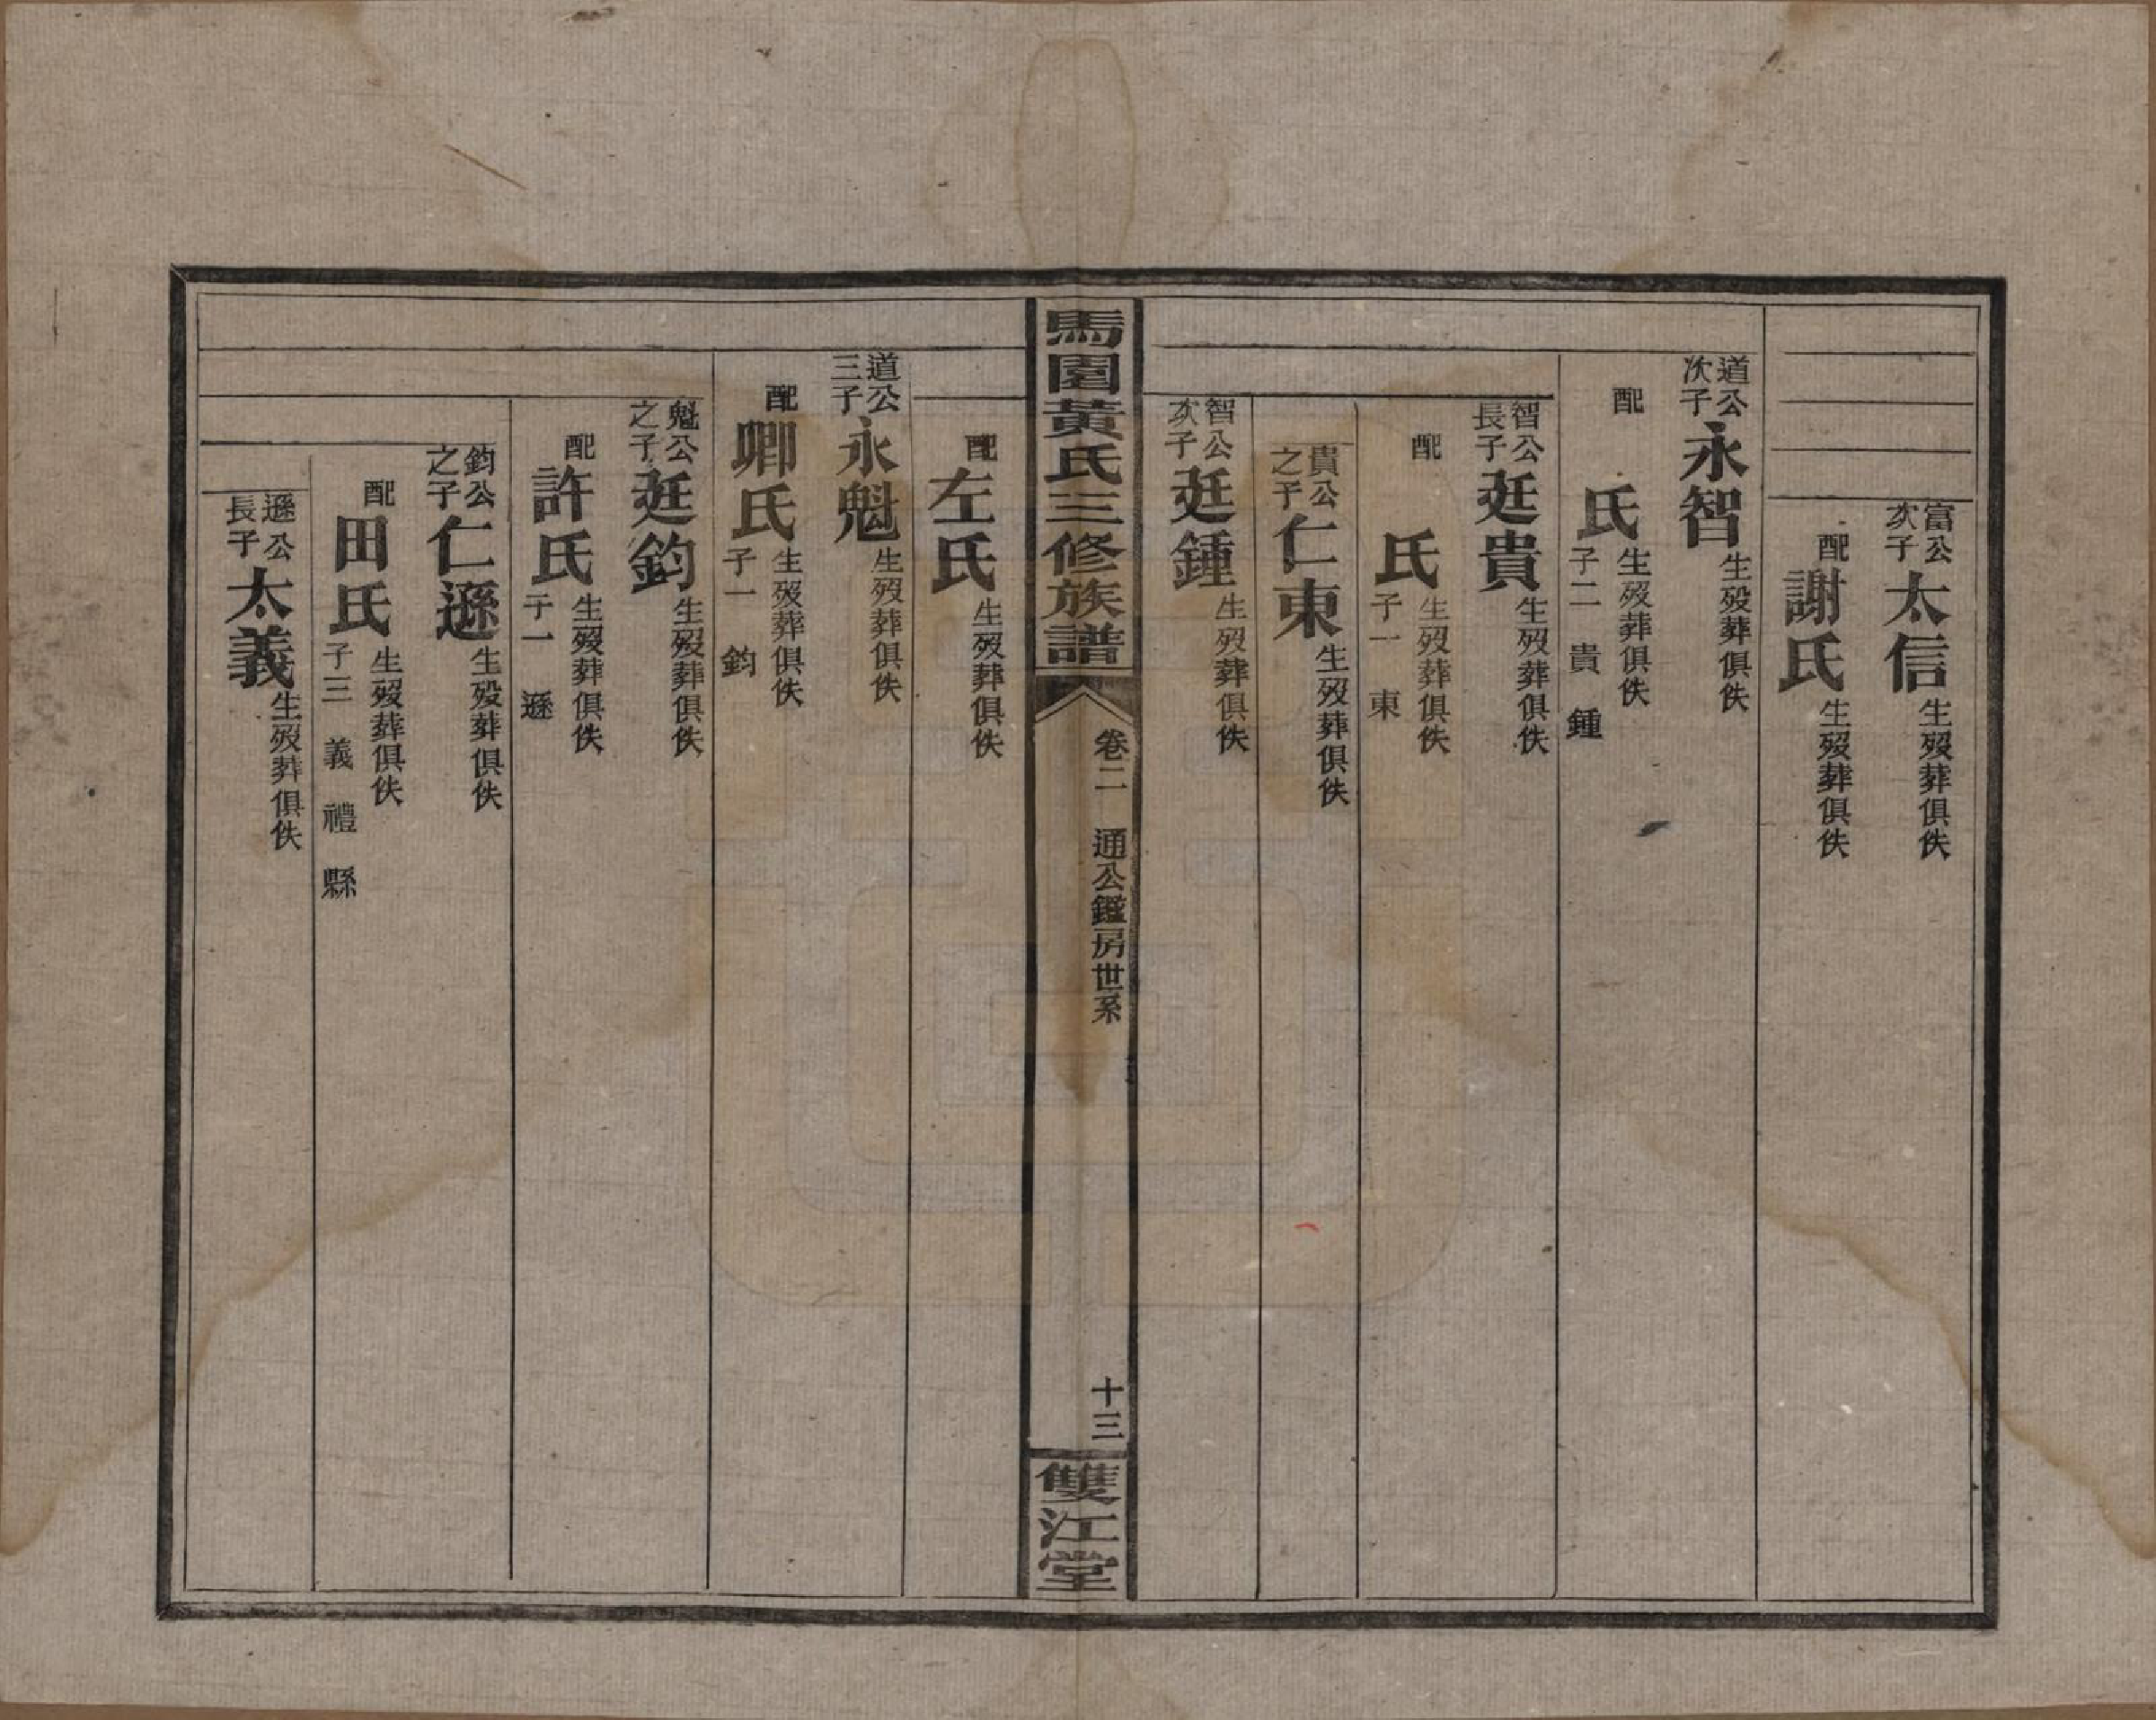 富公次子太信生歿葬俱佚
配謝氏生歿葬俱佚
道公次子永智生歿葬俱佚
配　氏生歿葬俱佚子二　貴　鍾
智公長子廷貴生歿葬俱佚
配　氏生歿葬俱佚子一　東
貴公之子仁東生歿葬俱佚
智公次子廷鍾生歿葬俱佚
馬園黃氏三修族譜
卷二　通公鑑房世系
十三
雙江堂
配左氏生歿葬俱佚
道公三子永魁生歿葬俱佚
配卿氏生歿葬俱佚子一　鈞
魁公之子廷鈞生歿葬俱佚
配許氏生歿葬俱佚子一　遜
鈞公之子仁遜生歿葬俱佚
配田氏生歿葬俱佚子三　義　禮　縣
遜公長子太義生歿葬俱佚